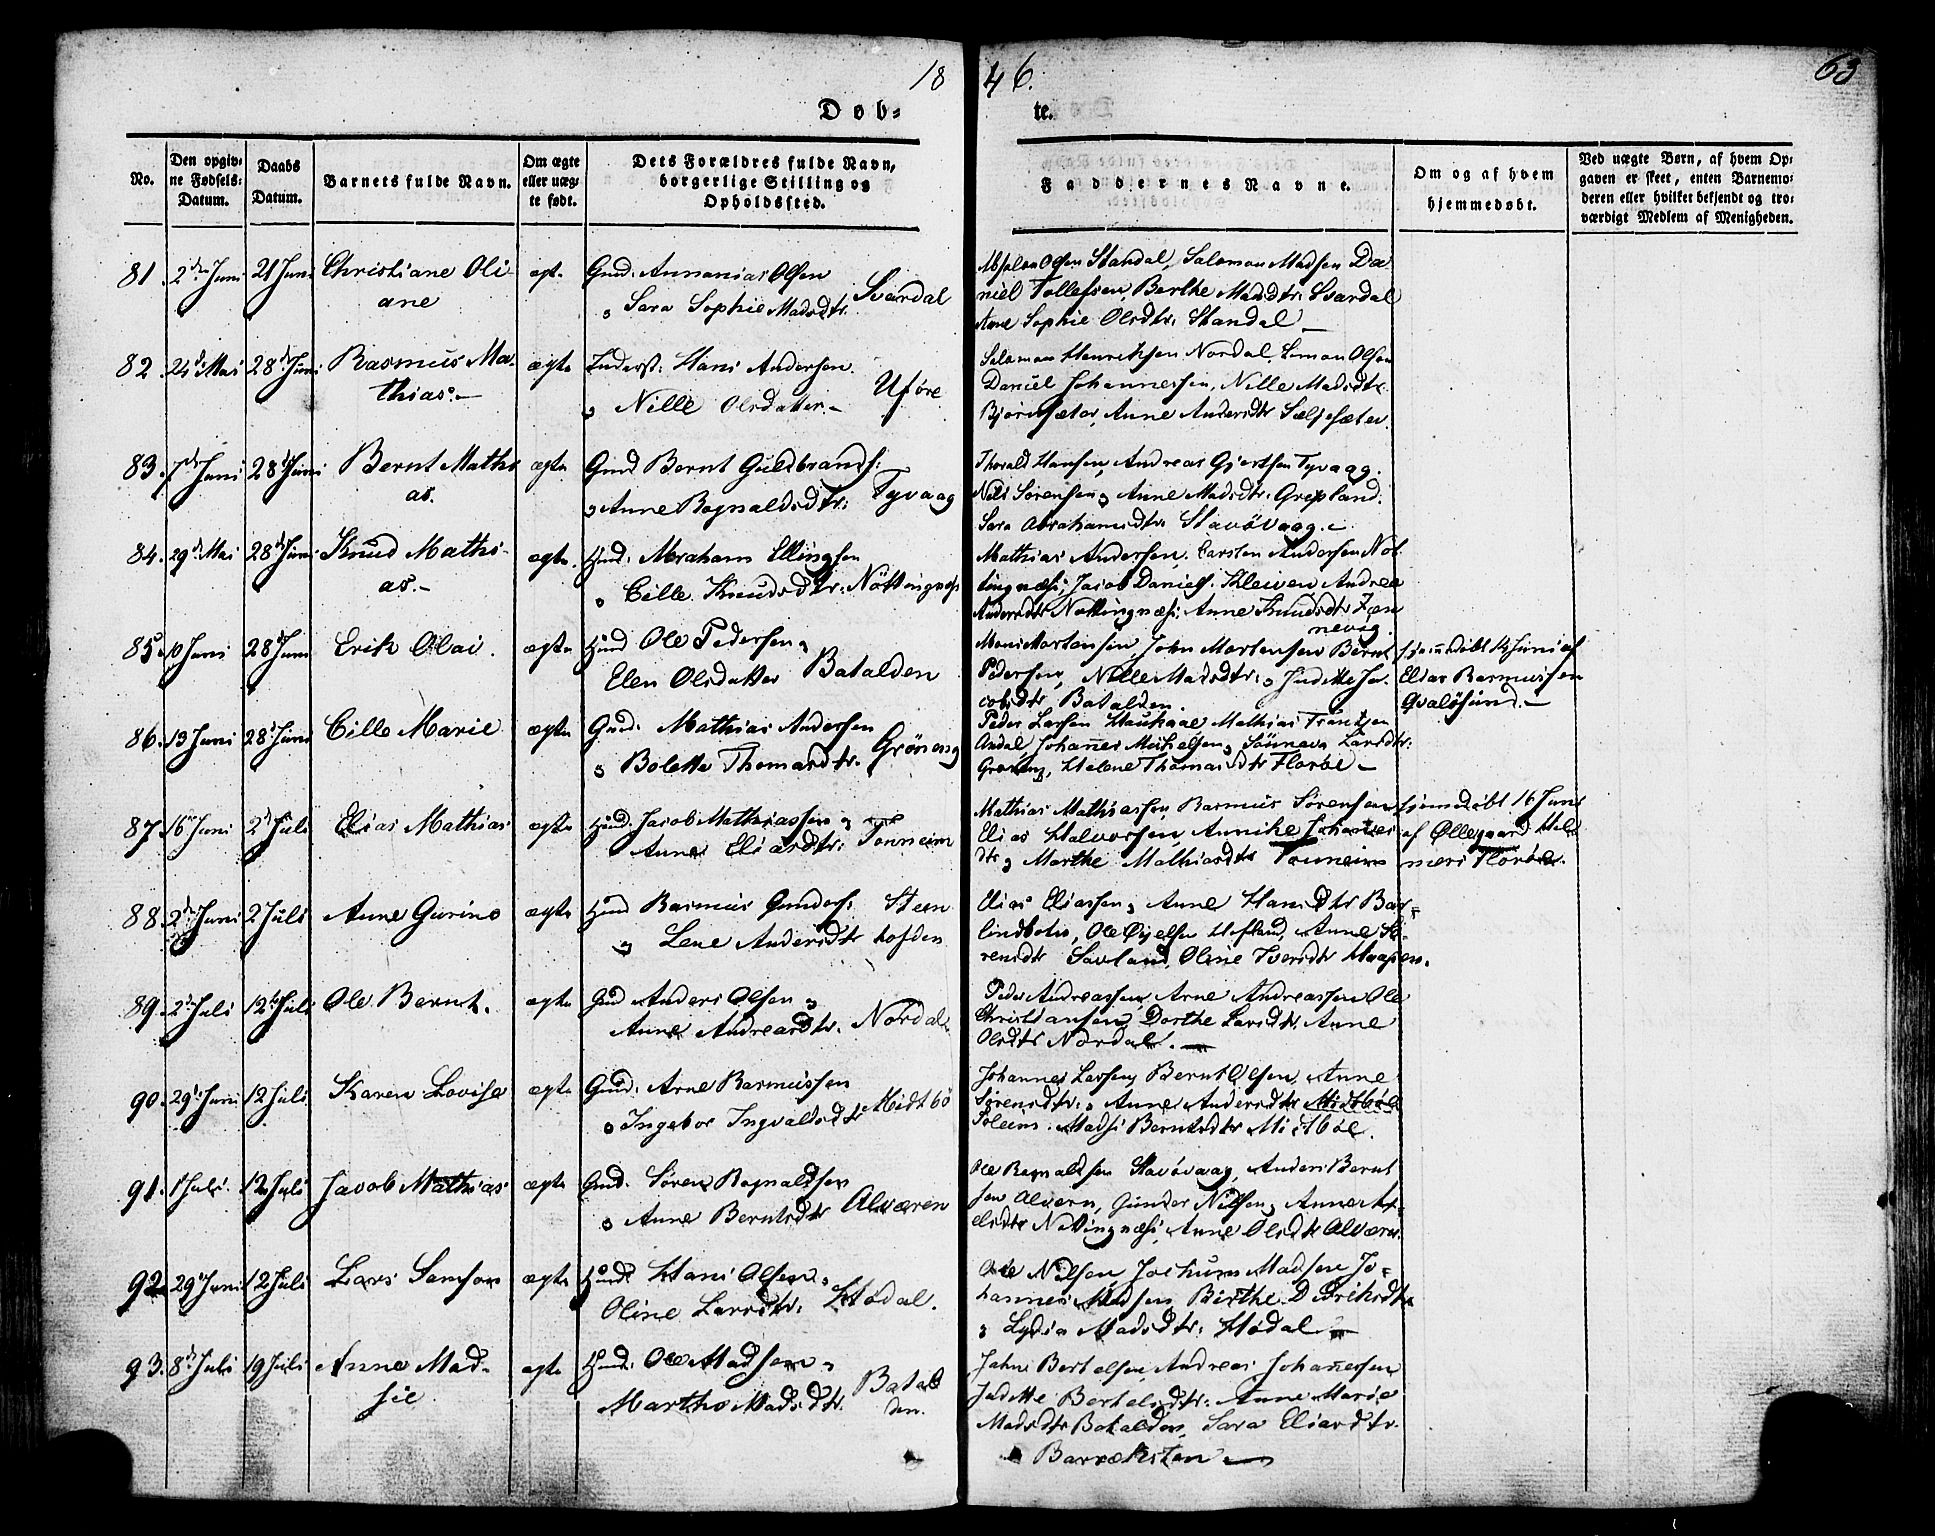 18
46.
63
Døb-
te.
No.
Den opgiv-
ne Fødsels-
Datum.
Daabs
Datum.
Barnets fulde Navn.
Om ægte
eller uæg-
te født.
Dets Forældres fulde Navn,
borgerlige Stilling og
Opholdssted.
Faddernes Navne.
Om og af hvem
hjemmedøbt.
Ved uægte Børn, af hvem Op-
gaven er skeet, enten Barnemo-
deren eller hvilket bekjendt og tro-
værdigt Medlem af Menigheden.
81. 2den Juni 21 Juni Christiane Oli-
ane
ægte Gmd: Annanias Olsen
" Sara Sophie Madsdtr. Svardal
Absolon Olsen Standal, Salomon Madsen Da
niel Tollefsen, Berthe Madsdtr: Svardal
Anne Sophie Olsdtr: Standal
82. 24d Mai 28d Juni Rasmus Ma-
thias.-
ægte Inderst: Hans Andersen.
" Nille Olsdatter.- Uføre
Salomon Henriksen Nordal, Simon Olsen
Daniel Johannessen, Nille Madsdtr.
Bjørnsæter, Anne Andersdtr Sælsesæter.
83. 7d Juni 28d Juni Bernt Mathi
as.
ægte Gmd Bernt Guldbrands:
" Anne Rognaldsdtr: Tyvaag
Thorald Hansen, Andreas Gjertsen Tyvaag.
Nils Sørensen, Anne Madsdtr: Grepland.
Sara Abrahamsdtr Stavøvaag.-
84. 29d Mai 28d Juni Knud Mathi-
as.-
ægte. Hmd: Abraham Ellingsen
" Cille Knudsdtr: Nøttingnæs
Mathias Andersen, Carsten Andersen Nøt
tingnæs, Jacob Daniels. Kleiven Andrea
Andersdtr Nøttingnæs: Anne Knudsdtr
nevag.
85. 10 Juni 28 Juni Erik Olai.
ægte Hmd Ole Pedersen
Elen Olsdatter Batalden
Mons Mortensen, John Mortensen Bernt
Pedersen, Nille Madsdtr: Juditte Ja-
cobsdtr Batalden.
hjemmedøbt 14 Juni af
Elias Rasmussen
Qvaløsund.-
86. 13 Juni 28d Juni Cille Marie
ægte Gmd: Mathias Andersen
" Bolette Thomasdtr. Grøneng
Peder Larsen Haukaae Mathias Frantzen
Andal, Johannes Michelsen, Sünneva Larsdtr:
Grøneng, Helene Thomasdtr Florøe -
87. 16 Juni 2d Juli Elias Mathias
ægte Hmd: Jacob Mathiassen
Anne Eliasdtr: Tonheim
Mathias Mathiassen, Rasmus Sørensen
Elias Halvorsen, Annike Johannes
dtr, Marthe Mathiasdtr Tonheim
hjemmedøbt 16 Juni
af Øllegaard Hel
mers Florøe.
88. 2d Juni 2 Juli Anne Gurine
ægte Hmd Rasmus Gunders:
" Lene Andersdtr Steen
hofden
Elias Eliassen, Anne Hansdtr Bar-
lindbotn, Ole Hofland, Anne Sø-
rensdtr Savland, Oline Iversdtr
89. 2d Juli 12te Juli Ole Bernt.
ægte Gmd Anders Olsen
Anne Andreasdtr. Nordal
Peder Andreassen, Arne Andreassen Ole
Christiansen, Dorthe Larsdtr. Anne
Olsdtr Nordal.
90. 29d Juni 12 Juli Karen Lovise
ægte Gmd: Arne Rasmussen
" Ingebor Ingvaldsdtr Midtbø
Johannes Larsen, Bernt Olsen, Anne
Sørensdtr: Anne Andersdtr Midtbøe
Soleim. Madsi Berntsdtr Midtbøe.
91. 1 Juli. 12 Juli Jacob Mathias
ægte Gmd: Søren Rognaldsen
" Anne Berntsdtr Alværen
Ole Rognaldsen Stavøvaag, Anders Bernt
sen Alværn, Gunder Nilsen, Anne Ax-
elsdtr Nøttingnæs, Anne Olsdtr Alværn.
92. 29 Juni 12 Juli Lars Samson
ægte Hmd: Hans Olsen
Oline Larsdtr: Hødal.
Ole Nilsen, Jochum Madsen Jo-
hannes Madsen, Birthe Didriksdtr
" Lydia Madsdtr: Hødal
93. 8d Juli 19 Juli Anne Mad-
sie
ægte Hmd: Ole Madsen
Marthe Madsdtr. Batal
den.
John Bertelsen, Andreas Johannessen
Juditte Bertelsdtr: Anne Marie
Madsdtr Batalden, Sara Eliasdtr.
Barrekisten